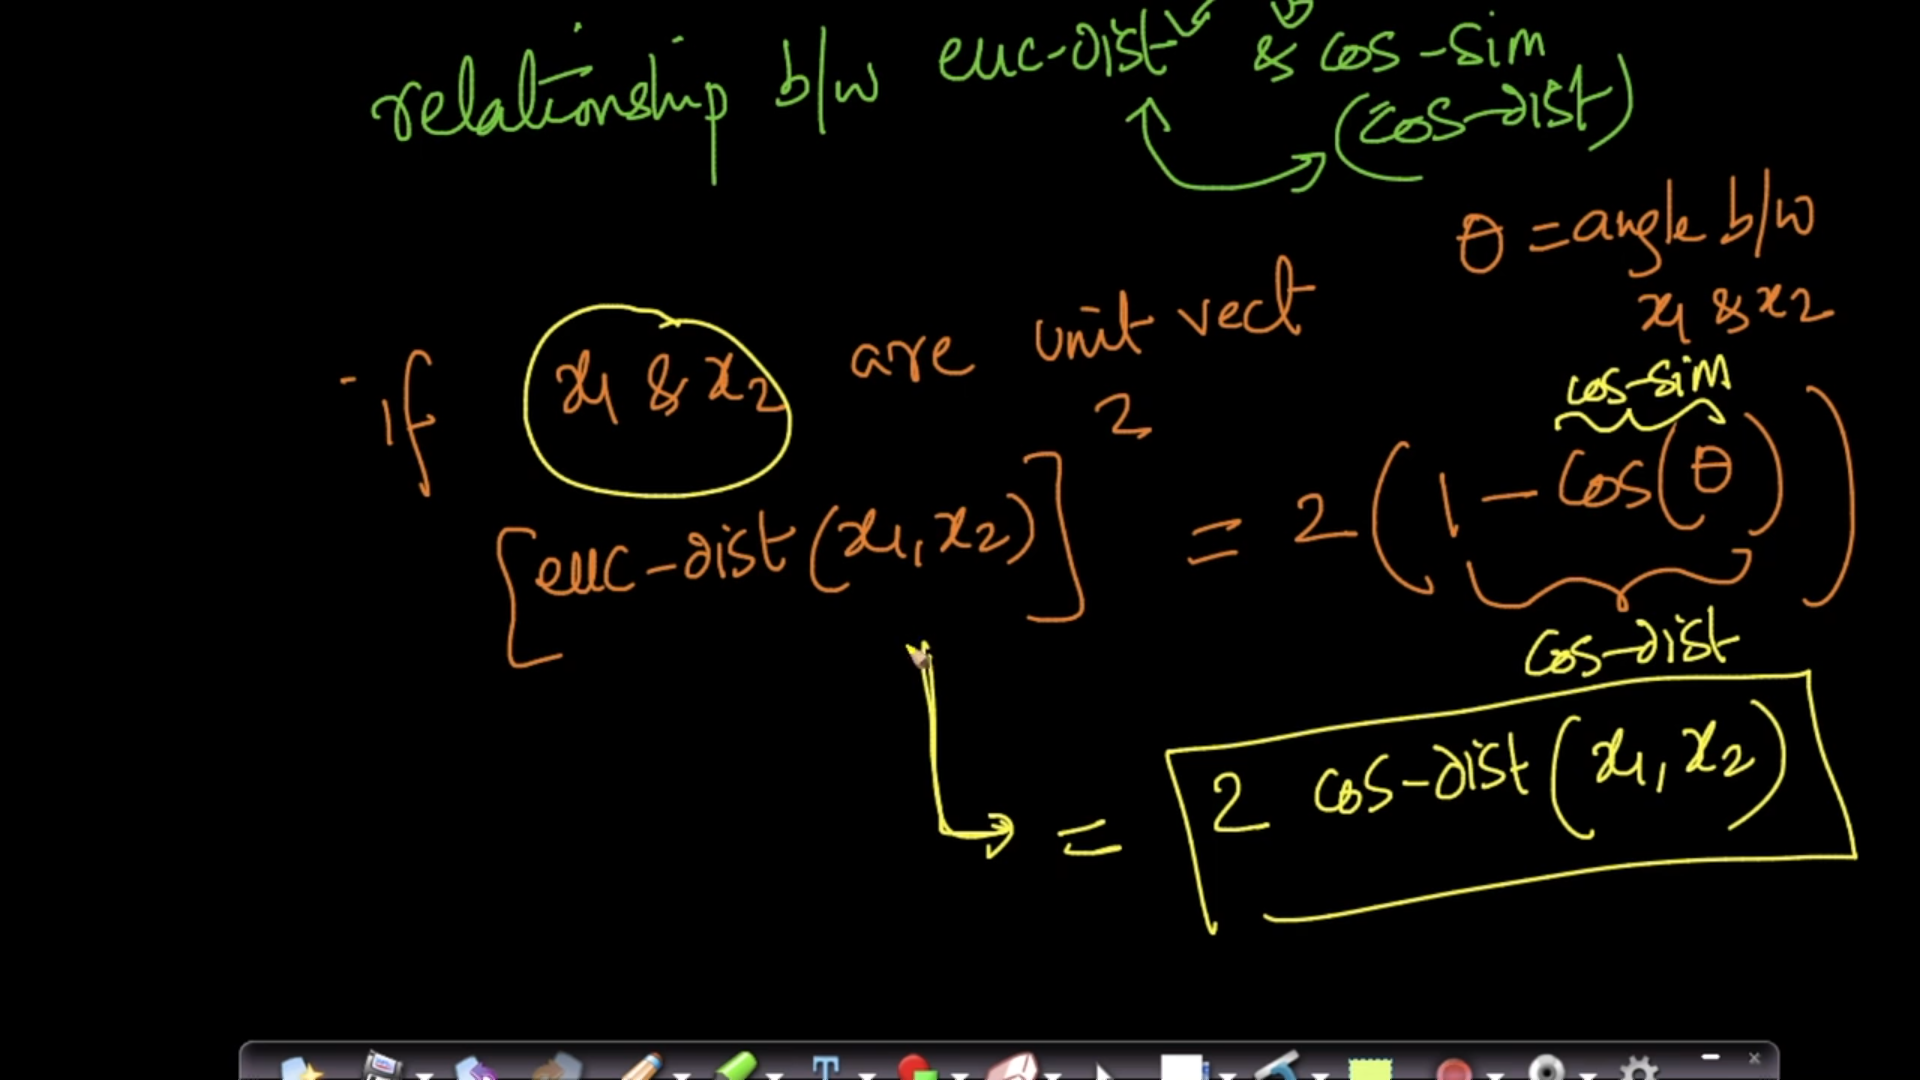 relationship b/w euc-dist & cos-sim
(cos-dist)
θ = angle b/w
x1 & x2
if x1 & x2 are unit vect
cos-sim
[euc-dist(x1, x2)]² = 2(1 - cos(θ))
cos-dist
= 2 cos-dist(x1, x2)
T